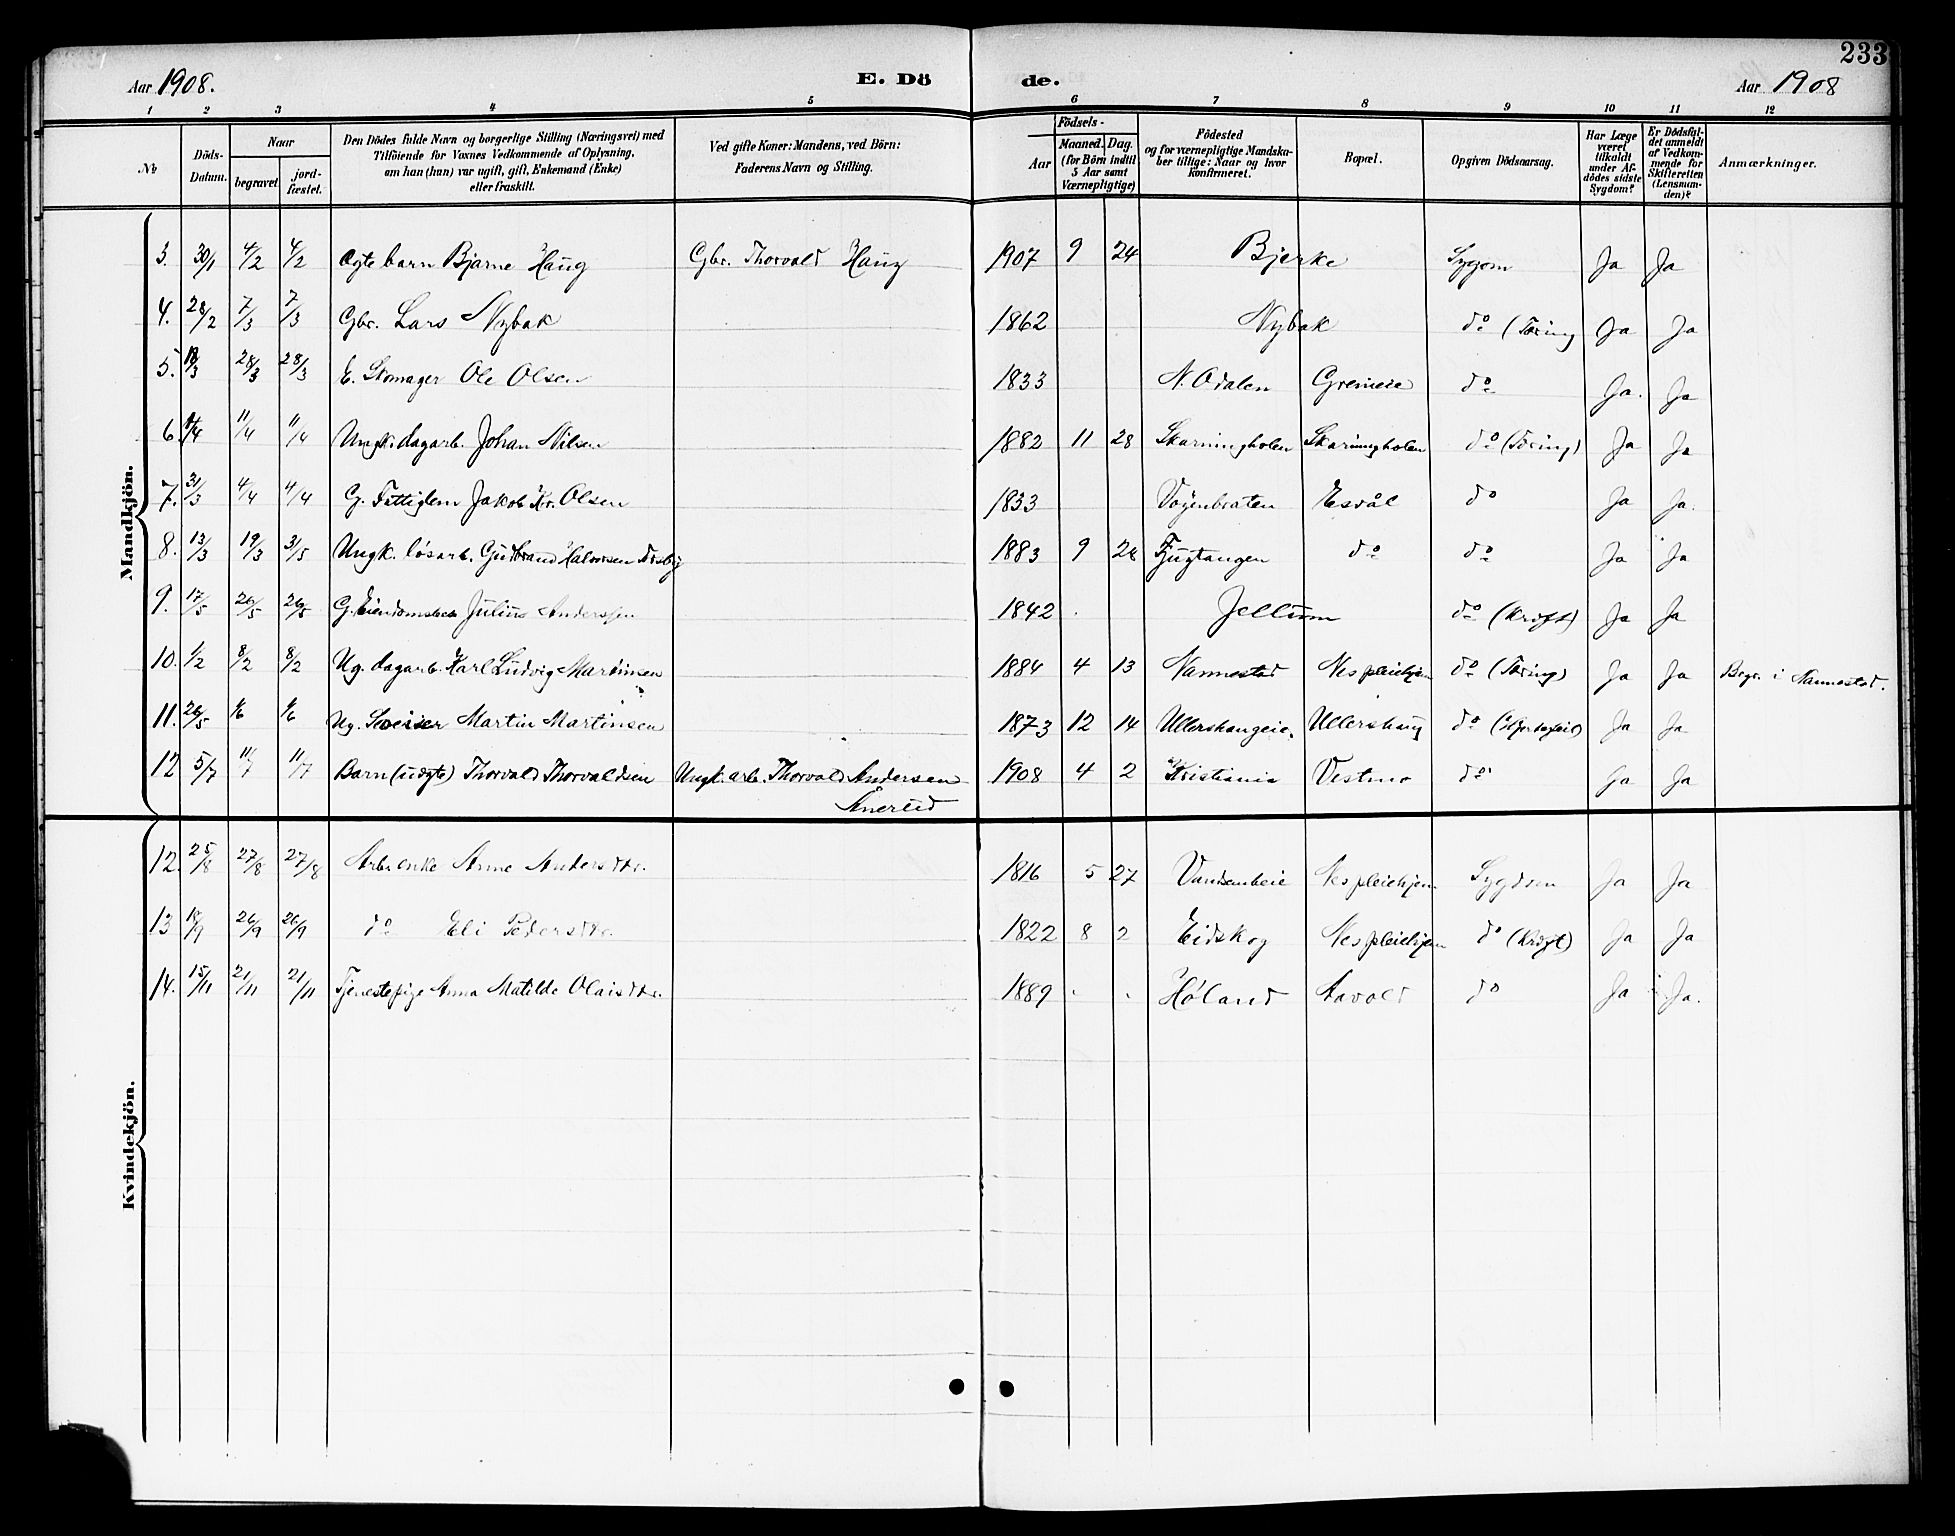 233
Aar 1908. E. Dö de. Aar 1908
1 2 3 4 5 6 7 8 9 10 11 12
№ Döds-Datum. Naar begravet jord-fæstet. Den Dödes fulde Navn og borgerlige Stilling (Næringsvei) med Tilföiende for Voxnes Vedkommende af Oplysning, om han (hun) var ugift, gift, Enkemand (Enke) eller fraskilt. Ved gifte Koner: Mandens, ved Börn: Faderens Navn og Stilling. Födsels- Aar Maaned. Dag. (for Börn indtil 5 Aar samt Værnepligtige) Födested og for værnepligtige Mandskaber tillige: Naar og hvor konfirmeret. Bopæl. Opgiven Dödsaarsag. Har Læge været tilkaldt under Afdödes sidste Sygdom? Er Dödsfaldet anmeldt af Vedkommende for Skifteretten (Lensmanden)? Anmærkninger.
Mandkjön.
3. 30/1 4/2 4/2 Ægte barn Bjarne Haug Gbr. Thorvald Haug 1907 9 24 Bjerke Sygdom Ja Ja
4. 28/2 7/3 7/3 Gbr. Lars Nybak 1862 Nybak do (Tæring Ja Ja
5. 28/3 28/3 E. Skomager Ole Olsen 1833 N. Odalen Greneie do Ja. Ja
6. 11/4 11/4 Ungk. dagarb. Johan Nilsen 1882 11 28 Skarningholen Skarningholen do (Tæring) Ja Ja
7. 31/3 4/4 4/4 G. Fattiglem Jakob Kr. Olsen 1833 Vøyenbraten Esvål do Ja Ja.
8. 13/3 19/3 31/5 Ungk. løsarb. Gudbrand Halvorsen 1883 9 Fjugtangen do do Ja Ja
9. 17/5 26/5 26/5 G. Eiendomsbes Julius Anderssen 1842 Jellum do (Kræft) Ja Ja
10. 1/2 8/2 8/2 Ug. dagarb. Karl Ludvig Martinsen 1884 4 13 Nannestad Nes pleiehjem do (Tæring) Ja Ja Begr. i Nannestad.
11. 26/5 1/6 1/6 Ug. Sveiser Martin Martinsen 1873 12 14 Ullershaugeie. Ullershaug do (Hjertefeil) Ja Ja
12 5/7 11/7 11/7 Barn (uægte) Thorvald Thorvaldsen Ungk. arb. Thorvald Andersen Ånerud 1908 4 2 Kristiania Vestmo do Ja Ja
Kvindekjön.
12. 25/8 27/8 27/8 Arb. enke Anne Andersdtr. 1816 5 27 Nes pleiehjem Sygdom Ja Ja
13 18/9 26/9 26/9 do Eli Pedersdtr. 1822 8 2 Eidskog Nes pleiehjem do (Kræft) Ja Ja
14. 15/11 21/11 21/11 Tjenestepige Anna Matilde Olaisdtr. 1889 Høland Aavold do Ja Ja.